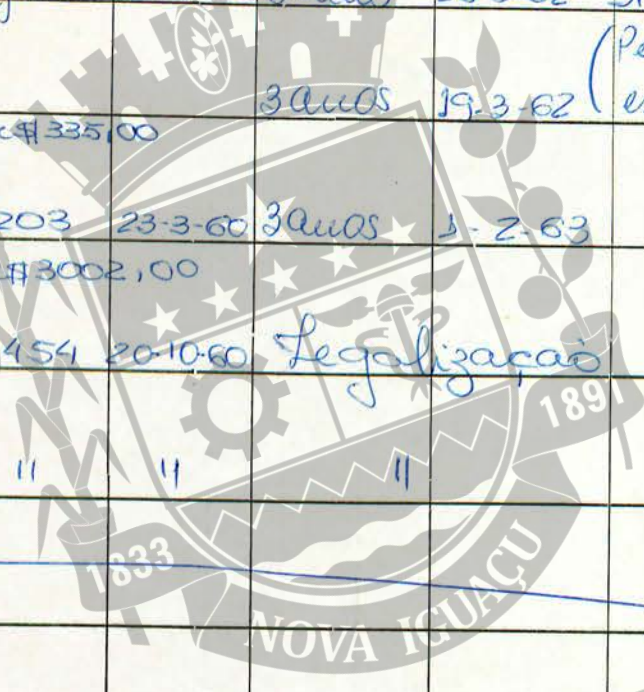 3 anos 19-3-62 (
$335,00
203 23-3-60 3 anos 1-2-63
$3002,00
454 20-10-60 Legalização
" " "
1891
1833
NOVA IGUAÇU